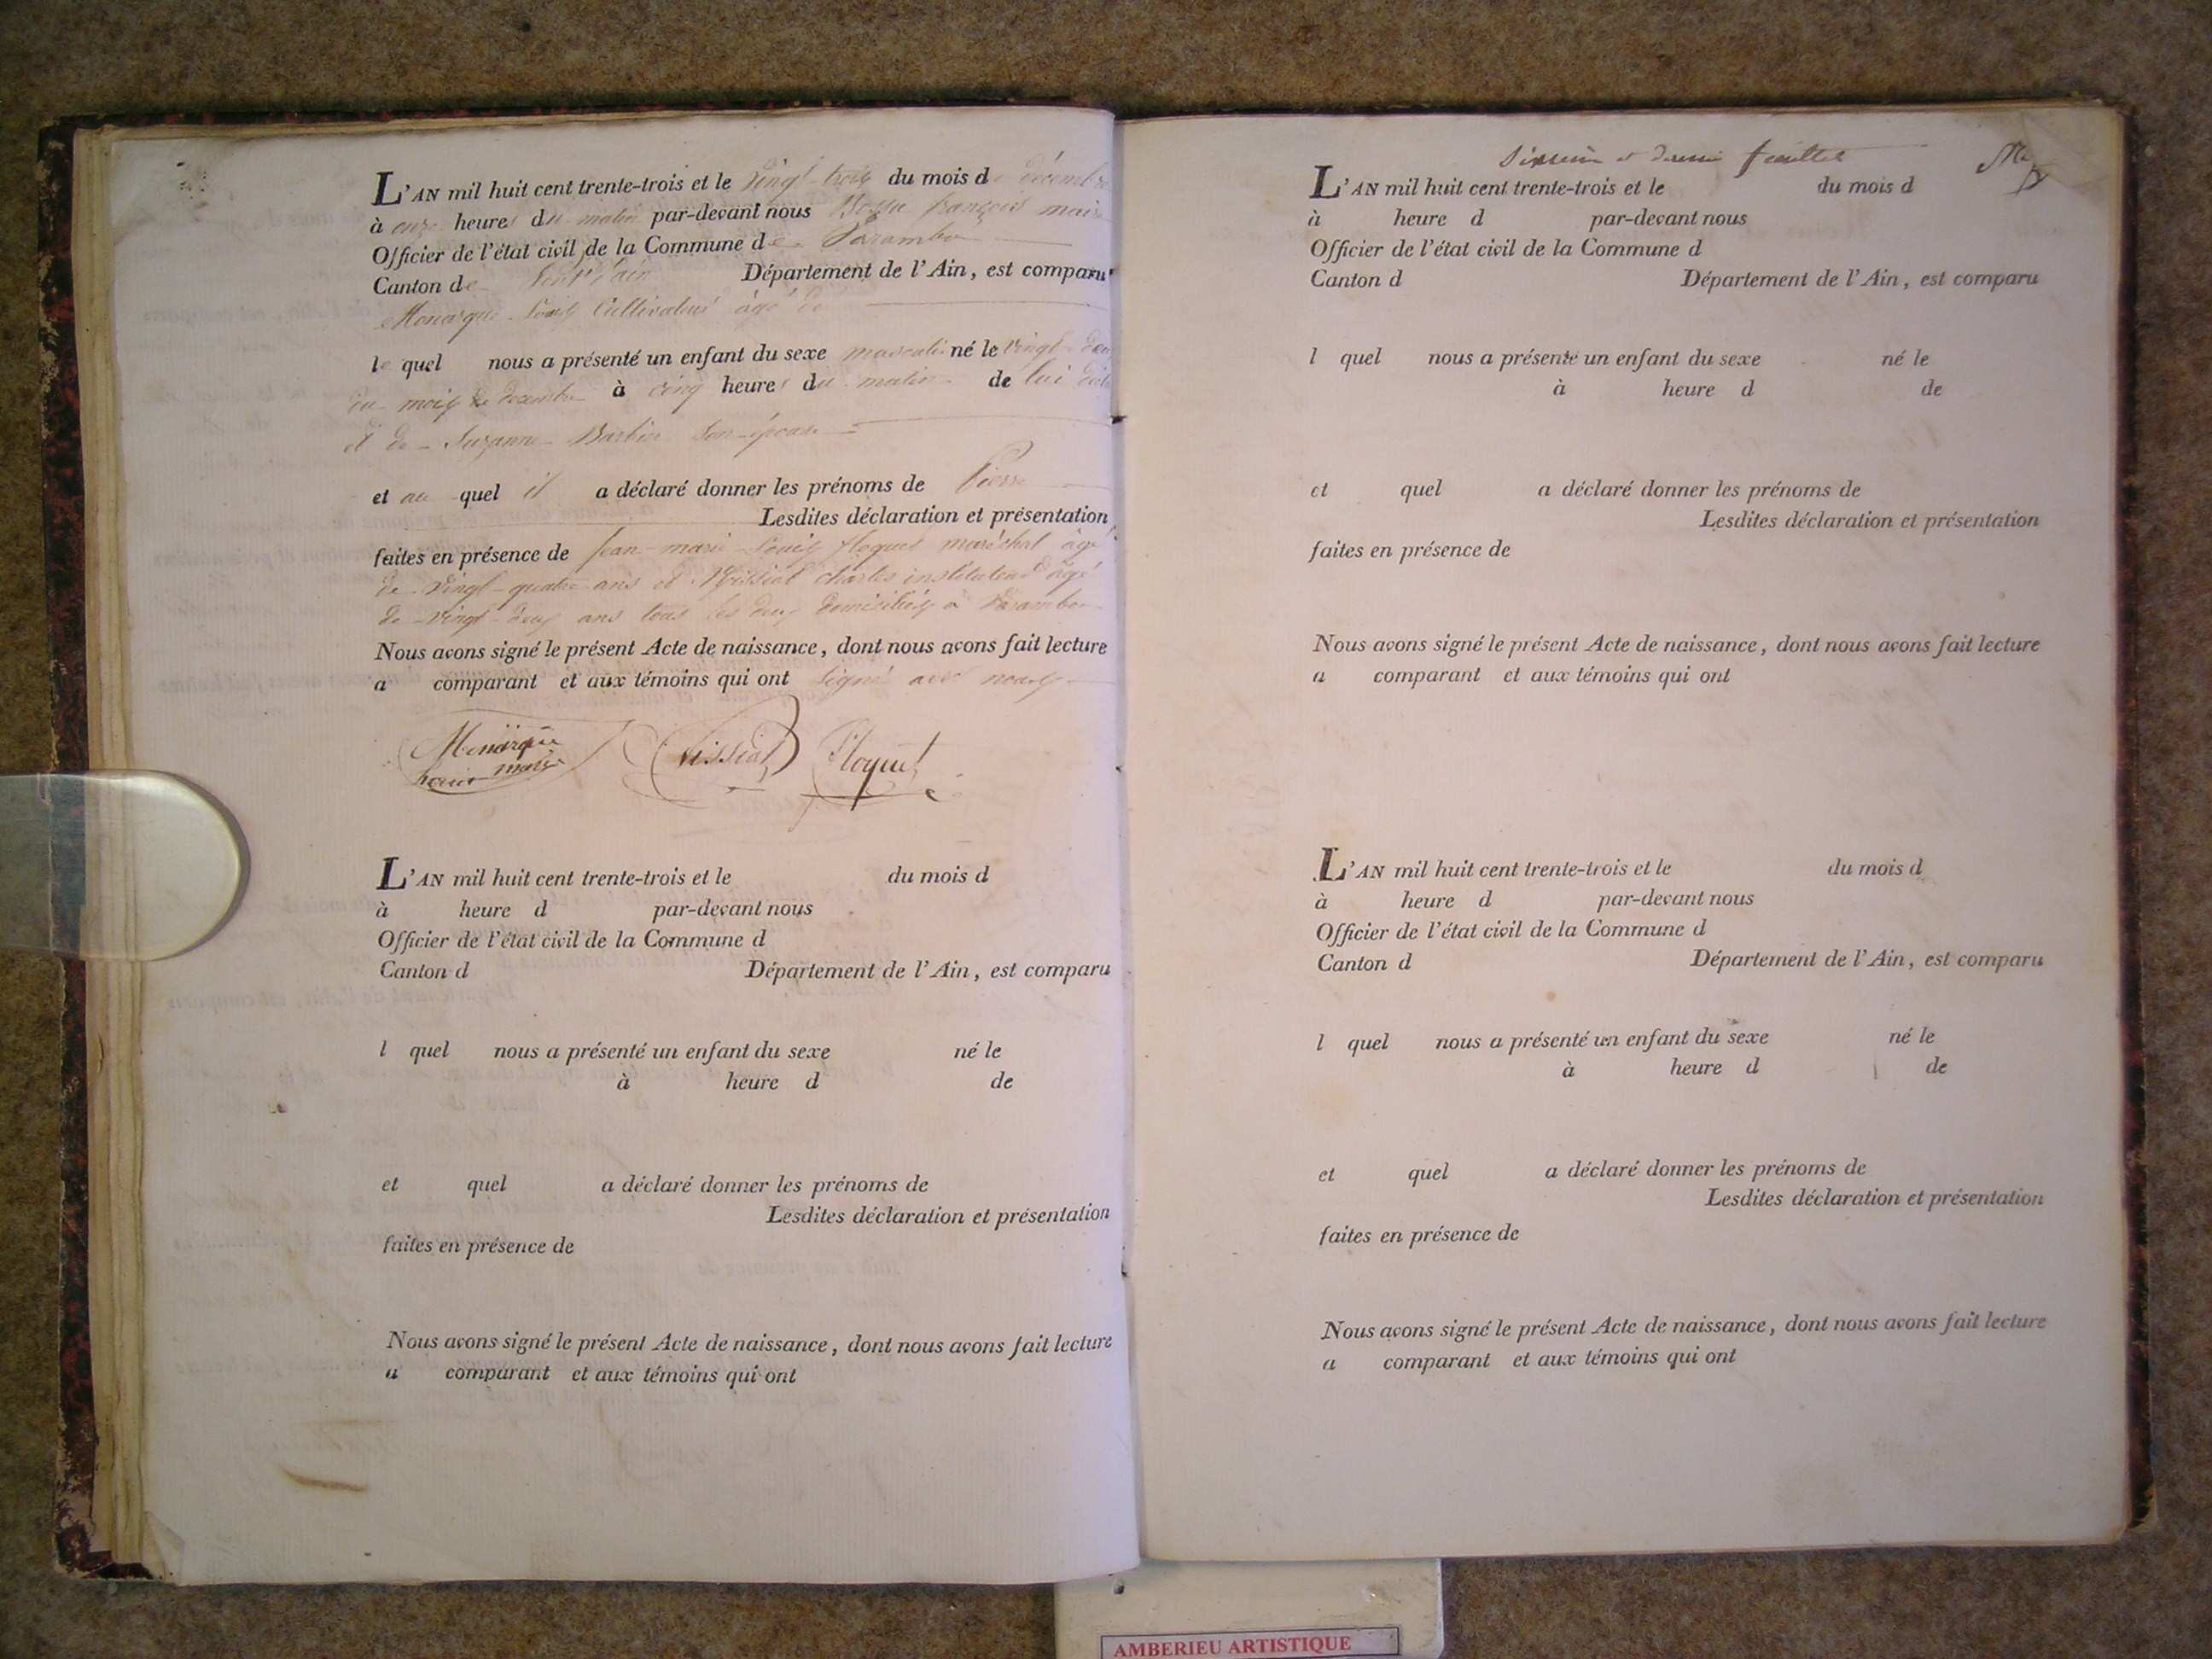 L'AN mil huit cent trente-trois et le vingt-trois du mois de décembre
à onze heures du matin par-devant nous Bossu françois maire
Officier de l'état civil de la Commune de Varambon
Canton de Pont d'ain Département de l'Ain, est comparu
Monarque Louis Cultivateur âgé de
le quel nous a présenté un enfant du sexe masculin né le vingt-deux
du mois de decembre à cinq heures du matin de lui
et de Suzanne Barbier son épouse
et au quel il a déclaré donner les prénoms de Pierre
Lesdites déclaration et présentation
faites en présence de jean-marie Louis floquet maréchal âgé
de vingt-quatre ans et charles instituteur âgé
de vingt-deux ans tous les deux domiciliés à Varambon
Nous avons signé le présent Acte de naissance, dont nous avons fait lecture
a comparant et aux témoins qui ont signé avec nous
Monarque Floquet
L'AN mil huit cent trente-trois et le du mois d
à heure d par-devant nous
Officier de l'état civil de la Commune d
Canton d Département de l'Ain, est comparu
l quel nous a présenté un enfant du sexe né le
à heure d de
et quel a déclaré donner les prénoms de
Lesdites déclaration et présentation
faites en présence de
Nous avons signé le présent Acte de naissance, dont nous avons fait lecture
a comparant et aux témoins qui ont
Sixième et dernier feuillet
L'AN mil huit cent trente-trois et le du mois d
à heure d par-devant nous
Officier de l'état civil de la Commune d
Canton d Département de l'Ain, est comparu
l quel nous a présenté un enfant du sexe né le
à heure d de
et quel a déclaré donner les prénoms de
Lesdites déclaration et présentation
faites en présence de
Nous avons signé le présent Acte de naissance, dont nous avons fait lecture
a comparant et aux témoins qui ont
L'AN mil huit cent trente-trois et le du mois d
à heure d par-devant nous
Officier de l'état civil de la Commune d
Canton d Département de l'Ain, est comparu
l quel nous a présenté un enfant du sexe né le
à heure d de
et quel a déclaré donner les prénoms de
Lesdites déclaration et présentation
faites en présence de
Nous avons signé le présent Acte de naissance, dont nous avons fait lecture
a comparant et aux témoins qui ont
AMBERIEU ARTISTIQUE